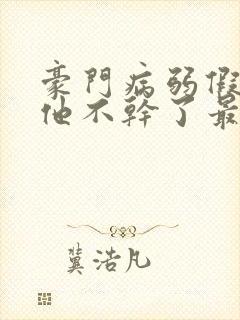 豪門病弱假
他不幹了最
冀浩凡